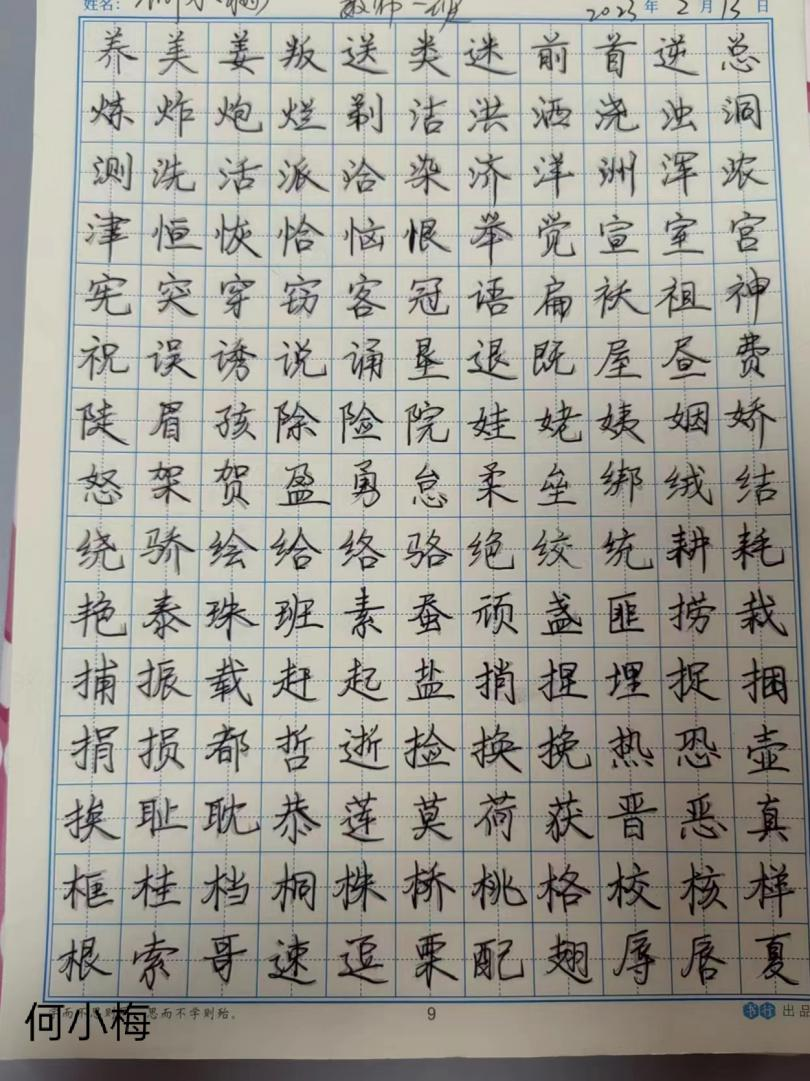 姓名： 教师一班 2023年2月13日
养美姜叛送类迷前首逆总
炼炸炮烂剃洁洪洒浇浊洞
测洗活派洽染济洋洲浑浓
津恒恢恰恼恨举觉宣室宫
宪突穿窃客冠语扁袄祖神
祝误诱说诵垦退既屋昼费
陡眉孩除险院娃姥姨姻娇
怒架贺盈勇怠柔垒绑绒结
绕骄绘给络骆绝绞统耕耗
艳泰珠班素蚕顽盏匪捞栽
捕振载赶起盐捎捏埋捉捆
捐损都哲逝捡换挽热恐壶
挨耻耽恭莲莫荷获晋恶真
框桂档桐株桥桃格校核样
根索哥速逗栗配翅辱唇夏
思而不学则殆。 9 书行 出品
何小梅